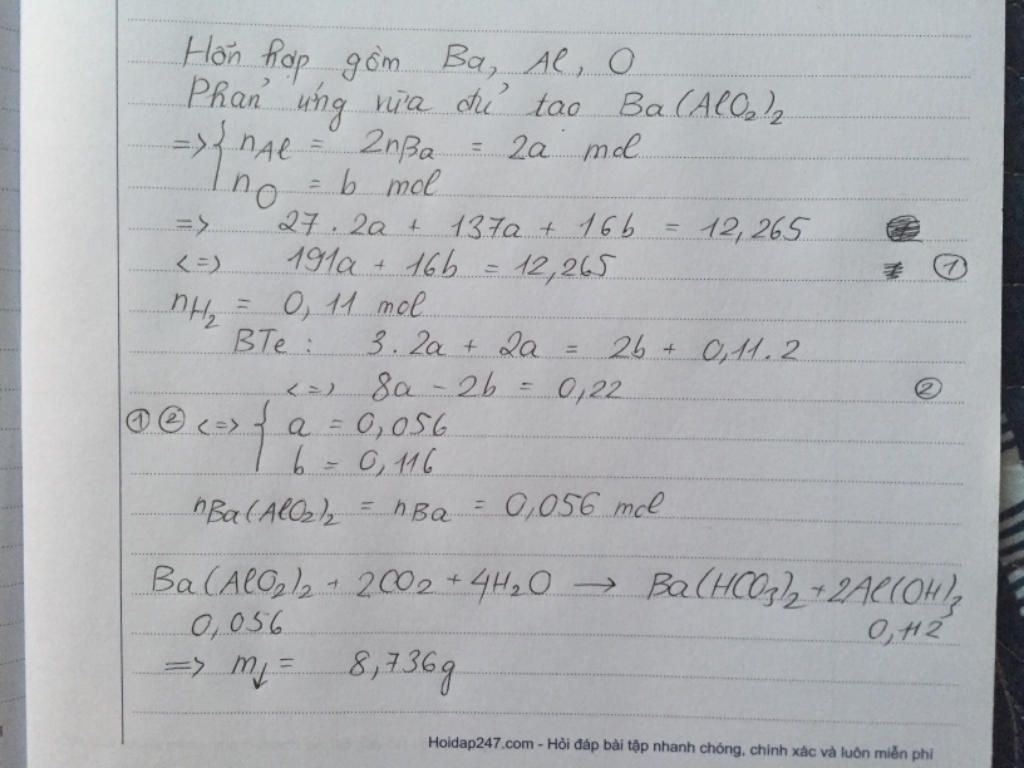 Hỗn hợp gồm Ba, Al, O
Phản ứng vừa đủ tạo Ba(AlO₂)₂
=> { nAl = 2nBa = 2a mol
nO = b mol
=> 27.2a + 137a + 16b = 12,265
<=> 191a + 16b = 12,265 ①
nH₂ = 0,11 mol
BTe: 3.2a + 2a = 2b + 0,11.2
<=> 8a - 2b = 0,22 ②
① ② <=> { a = 0,056
b = 0,116
nBa(AlO₂)₂ = nBa = 0,056 mol
Ba(AlO₂)₂ + 2CO₂ + 4H₂O → Ba(HCO₃)₂ + 2Al(OH)₃
0,056 0,112
=> m↓ = 8,736g
Hoidap247.com - Hỏi đáp bài tập nhanh chóng, chính xác và luôn miễn phí